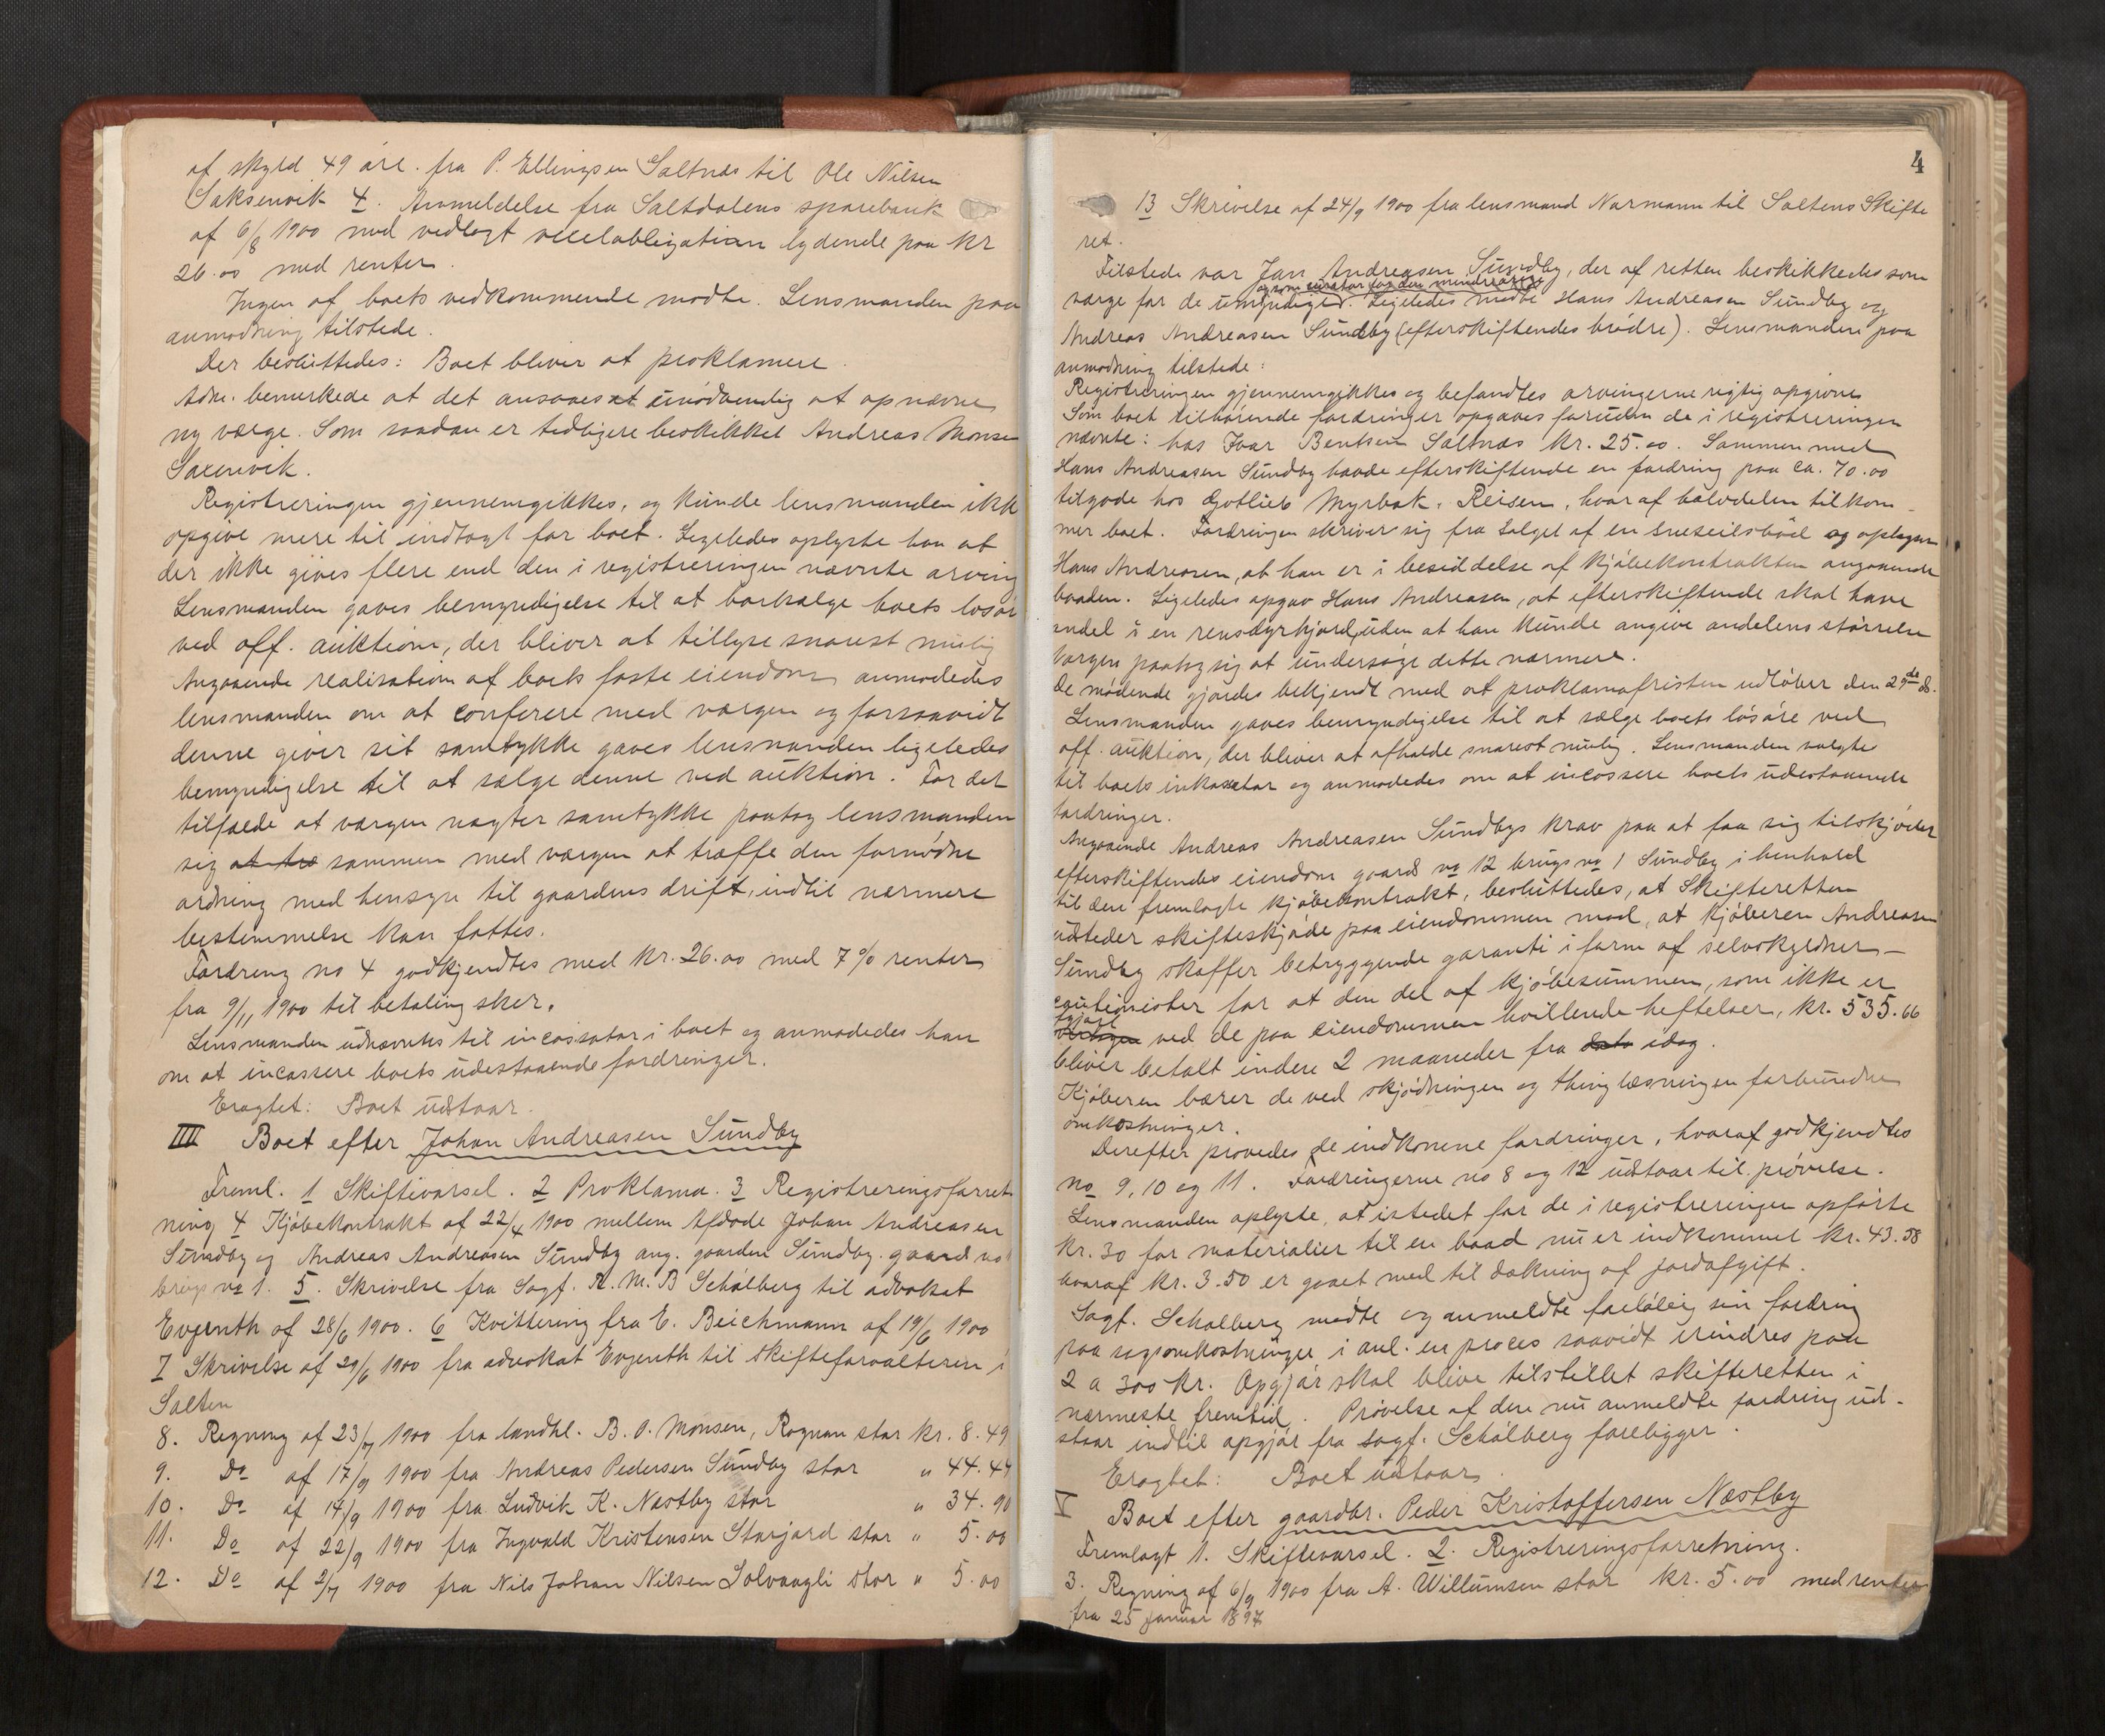 af skyld 49 øre fra P. Ellingsen Saltnæs til Ole Nilsen
Saksenvik 4. Anmeldelse fra Saltdalens sparebank
af 6/8 1900 med vedlagt vexelobligation lydende paa kr
26.00 med renter.
Ingen af boets vedkommende mødte. Lensmanden paa
anmodning tilstede.
Der besluttedes: Boet bliver at proklamere.
Adm. bemerkede at det ansaaes unødvendig at opnævne
ny værge. Som saadan er tidligere beskikket Andreas Monsen
Saxenvik.
Registreringen gjennemgikkes, og kunde lensmanden ikke
opgive mere til indtægt for boet. Ligeledes oplyste han at
der ikke gives flere end den i registreringen nævnte arving
Lensmanden gaves bemyndigelse til at bortsælge boets løsøre
ved off. auktion, der bliver at tillyse snarest mulig
Angaaende realisation af boets faste eiendom anmodedes
lensmanden om at conferere med værgen og forsaavidt
denne giver sit samtykke gaves lensmanden ligeledes
bemyndigelse til at sælge denne ved auktion. For det
tilfælde at værgen nægter samtykke paatog lensmanden
sig at træ sammen med værgen at træffe den fornødne
ordning med hensyn til gaardens drift, indtil nærmere
bestemmelse kan fattes.
Fordring no 4 godkjendtes med kr. 26.00 med 7% renter
fra 9/11 1900 til betaling sker.
Lensmanden udnævntes til incassator i boet og anmodedes han
om at incassere boets udestaaende fordringer.
Eragtet: Boet udstaar.
IIII Boet efter Johan Andreasen Sundby
Freml. 1 Skiftevarsel. 2 Proklama. 3 Registreringsforret
ning 4 Kjøbekontrakt af 22/4 1900 mellem Afdøde Johan Andreasen
Sundby og Andreas Andreasen Sundby ang. gaarden Sundby. gaards no
brugs no 1. 5. Skrivelse fra Sagf. A. M. B Schálberg til advokat
Evjenth af 28/6 1900. 6 Kvittering fra E. Beichmann af 19/6 1900
7 Skrivelse af 29/6 1900 fra advokat Evjenth til skifteforvalteren i
Salten
8. Regning af 23/7 1900 fra landhl. B. O. Monsen, Rognan stor kr. 8.49
9. Do af 17/9 1900 fra Andreas Pedersen Sundby stor " 44.44
10. Do af 14/9 1900 fra Ludvik K. Næstby stor " 34.90
11. Do af 22/9 1900 fra Ingvald Kristensen Storjord stor " 5.00
12. Do af 2/7 1900 fra Nils Johan Nilsen Solvaagli stor " 5.00
4
13 Skrivelse af 24/9 1900 fra lensmand Normann til Saltens Skifte
ret.
Tilstede var Jan Andreasen Sundby, der af retten beskikkedes som
og som curator for den mindreaarige
værge for de umyndige. Ligeledes mødte Hans Andreasen Sundby og
Andreas Andreasen Sundby (efterskiftendes brødre). Lensmanden paa
anmodning tilstede:
Registreringen gjennemgikkes og befandtes arvingerne rigtig opgivne
Som boet tilhørende fordringer opgaves foruden de i registreringen
nævnte: hos Ivar Bentsen Saltnæs kr. 25.00. Sammen med
Hans Andreasen Sundby havde efterskiftende en fordring paa ca. 70.00
tilgode hos Gotlieb Myrbak, Reisen, hvoraf halvdelen tilkom-
mer boet. Fordringen skriver sig fra Salget af en sneseilsbåd og oplyser
Hans Andreasen, at han er i besiddelse af kjøbekontrakten angaaende
baaden. Ligeledes opgav Hans Andreasen, at efterskiftende skal have
andel i en rensdyrhjord, uden at han kunde angive andelens størrelse
Værgen paatog sig at undersøge dette nærmere.
De mødende gjordes bekjendt med at proklamafristen udløber den 29de ds.
Lensmanden gaves bemyndigelse til at sælge boets løsøre ved
off. auktion, der bliver at afholde snarest mulig. Lensmanden valgtes
til boets inkassator og anmodedes om at incassere boets udestaaende
fordringer.
Angaaende Andreas Andreasen Sundbys krav paa at faa sig tilskjødet
efterskiftendes eiendom gaards no 12 brugs no 1 Sundby i henhold
til den fremlagte kjøbekontrakt, besluttedes, at Skifteretten
udsteder skifteskjøde paa eiendommen mod, at kjøberen Andreas
Sundby skaffer betryggende garanti i form af selvskyldner-
cautionister for at den del af kjøbesummen, som ikke er
afgjort
ved de paa eiendommen hvillende heftelser, kr. 535.66
bliver betalt inden 2 maaneder fra dato idag.
Kjøberen bærer de ved skjødningen og thinglæsningen forbundne
omkostninger.
Derefter prøvedes de indkomne fordringer, hvoraf godkjendtes
no 9, 10 og 11. Fordringerne no 8 og 12 udstaar til prøvelse.
Lensmanden oplyste, at istedet for de i registreringen opførte
kr. 30 for materialier til en baad nu er indkommet kr. 43.58
hvoraf kr. 3.50 er gaaet med til dækning af jordafgift.
Sagf. Schalberg mødte og anmeldte foreløbig sin fordring
paa sagsomkostninger i anl. en proces saavidt erindres paa
2 a 300 kr. Opgjør skal blive tilstillet skifteretten i
nærmeste fremtid. Prøvelse af den nu anmeldte fordring ud-
staar indtil opgjør fra Sagf. Schálberg foreligger.
Eragtet: Boet udstaar.
V Boet efter gaardbr. Peder Kristoffersen Næstby
Fremlagt 1. Skiftevarsel. 2. Registreringsforretning.
3. Regning af 6/9 1900 fra A. Willumsen stor kr. 5.00 med renter
fra 25 januar 1897